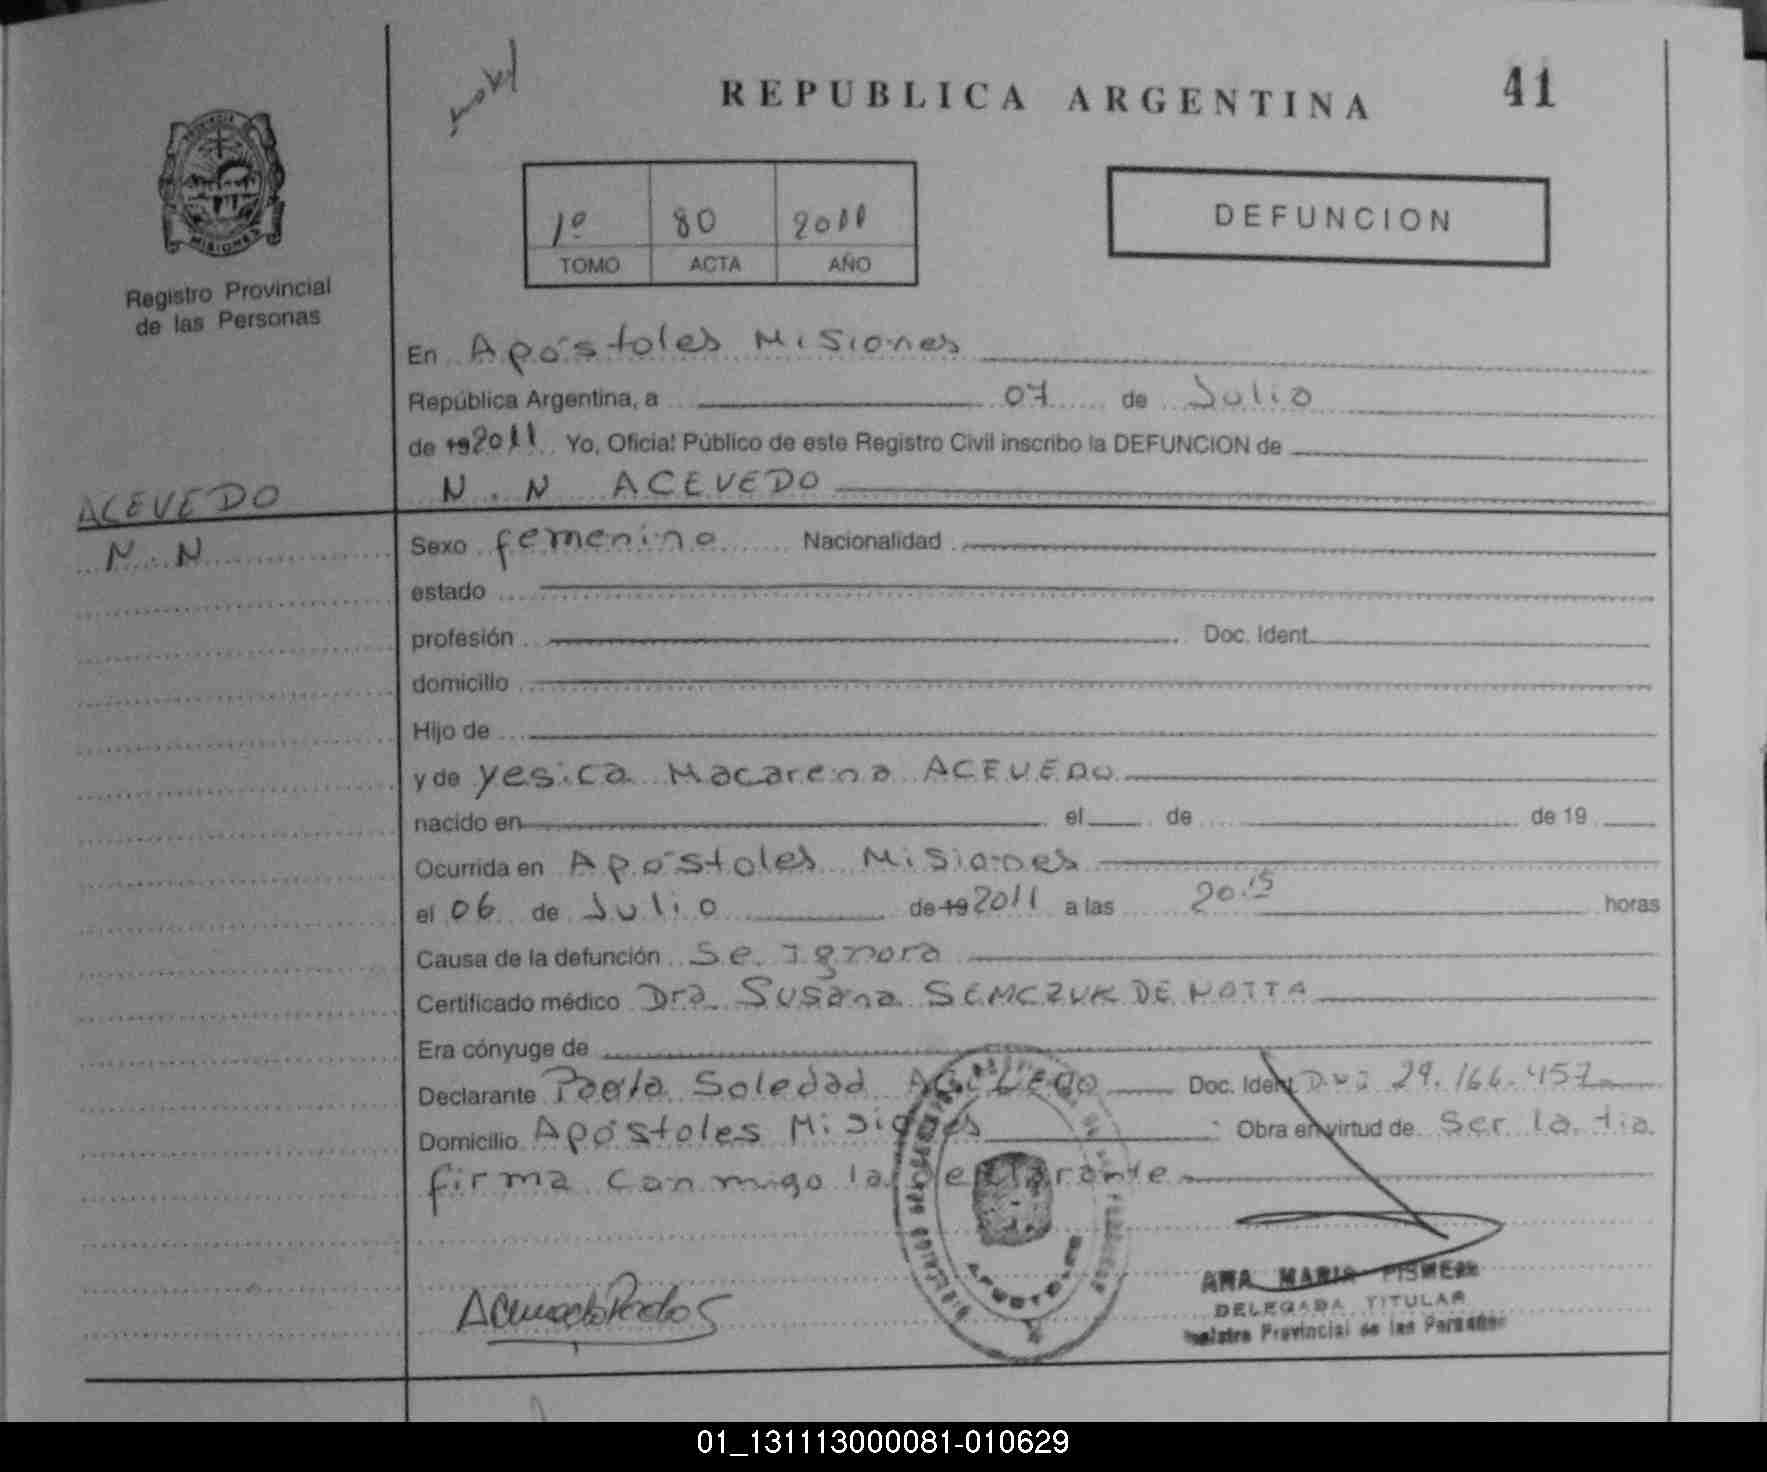 REPUBLICA ARGENTINA
41
PROVINCIA
MISIONES
Registro Provincial
de las Personas
1º 80 2011
TOMO ACTA AÑO
DEFUNCION
En Apóstoles Misiones
República Argentina, a 07 de Julio
de 19 2011 Yo, Oficial Público de este Registro Civil inscribo la DEFUNCION de
N.N ACEVEDO
ACEVEDO
N.N
Sexo femenino Nacionalidad
estado
profesión Doc. Ident.
domicilio
Hijo de
y de Yesica Macarena ACEVEDO
nacido en el de de 19
Ocurrida en Apóstoles Misiones
el 06 de Julio de 19 2011 a las 20.15 horas
Causa de la defunción Se Ignora
Certificado médico Dra Susana SEMCZUK DE MOTTA
Era cónyuge de
Declarante Soledad ACEVEDO Doc. Ident D.N.I 29.166.457
Domicilio Apóstoles Misiones Obra en virtud de Ser la tia
firma conmigo la declarante
APOSTOLES
ANA MARIA
DELEGADA TITULAR
Registro Provincial de las Personas
01_131113000081-010629